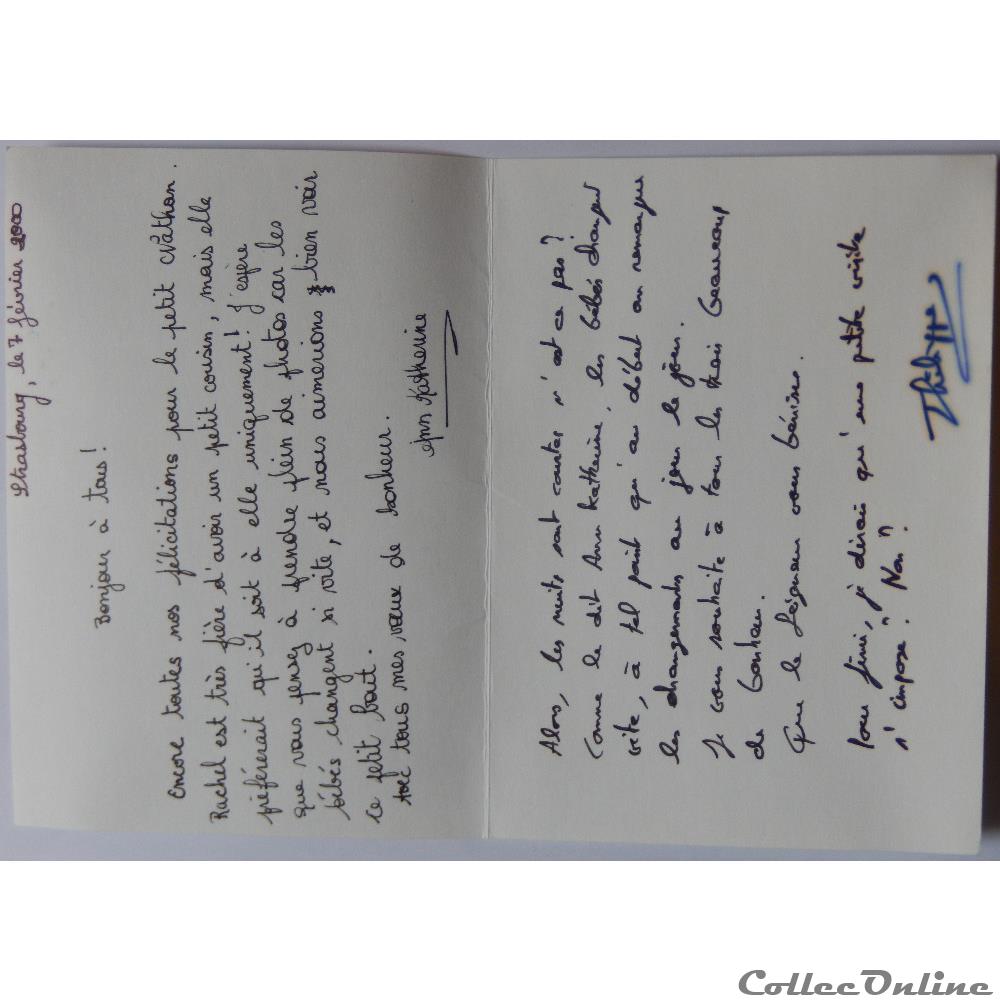 Strasbourg, le 7 février 2000
Bonjour à tous !
Encore toutes nos félicitations pour le petit Nathan.
Rachel est très fière d'avoir un petit cousin, mais elle
préférerait qu'il soit à elle uniquement ! J'espère
que vous pensez à prendre plein de photos car les
bébés changent si vite, et nous aimerions bien voir
ce petit bout.
Avec tous mes vœux de bonheur.
Ann Katherine
Alors, les nuits sont courtes n'est ce pas ?
Comme le dit Ann Katherine, les bébés changent
vite, à tel point qu'au début on remarque
les changements au jour le jour.
Je vous souhaite à tous les trois beaucoup
de bonheur.
Que le Seigneur vous bénisse.
Pour finir, je dirais qu'"une petite visite
s'impose". Non ?
Philippe
CollecOnline